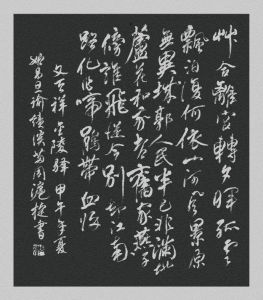 艸合離宮轉夕暉孤雲
飄泊復何依山河風景原
無異城郭人民半已非滿地
蘆花和我老舊家燕子
傍誰飛從今別卻江南
路化作啼鵑帶血歸
文天祥金陵驛 甲午年夏
周滬捷書